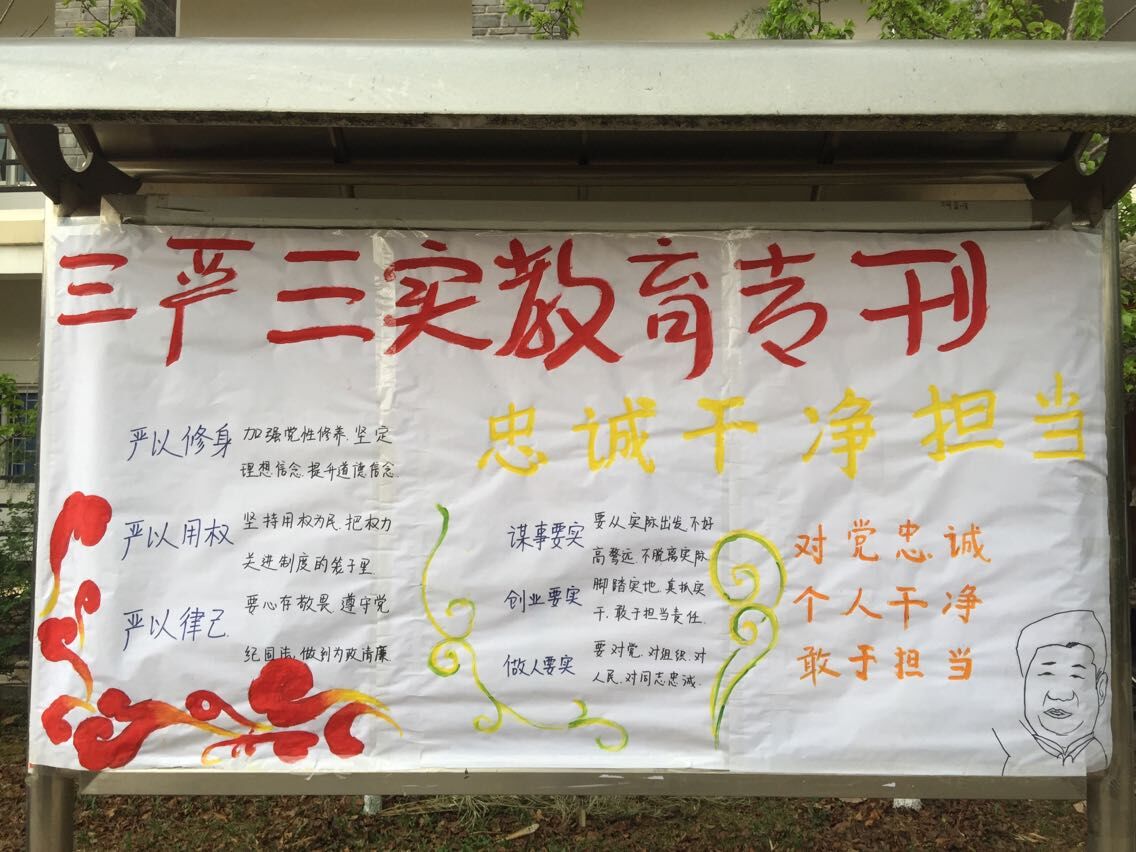 三严三实教育专刊
忠诚干净担当
严以修身
加强党性修养.坚定
理想信念.提升道德信念
严以用权
坚持用权为民.把权力
关进制度的笼子里
严以律己
要心存敬畏.遵守党
纪国法,做到为政清廉
谋事要实
要从实际出发.不好
高骛远.不脱离实际
创业要实
脚踏实地.真抓实
干.敢于担当责任.
做人要实
要对党.对组织.对
人民.对同志忠诚.
对党忠诚
个人干净
敢于担当